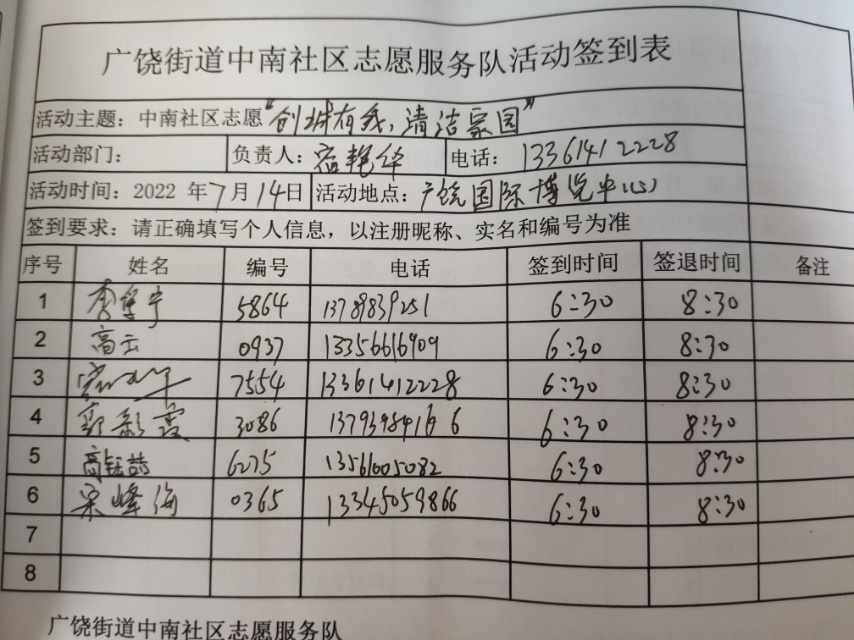 广饶街道中南社区志愿服务队活动签到表
活动主题：中南社区志愿“创城有我，清洁家园”
活动部门： 负责人：宿艳华 电话：13361412228
活动时间：2022 年7月14日 活动地点：广饶国际博览中心
签到要求：请正确填写个人信息，以注册昵称、实名和编号为准
序号 姓名 编号 电话 签到时间 签退时间 备注
1 5864 13789839251 6:30 8:30
2 高云 0937 13356616909 6:30 8:30
3 7554 13361412228 6:30 8:30
4 郭彩霞 3086 13793984166 6:30 8:30
5 高钰喆 6275 13561005082 6:30 8:30
6 宋峰海 0365 13345059866 6:30 8:30
7
8
广饶街道中南社区志愿服务队